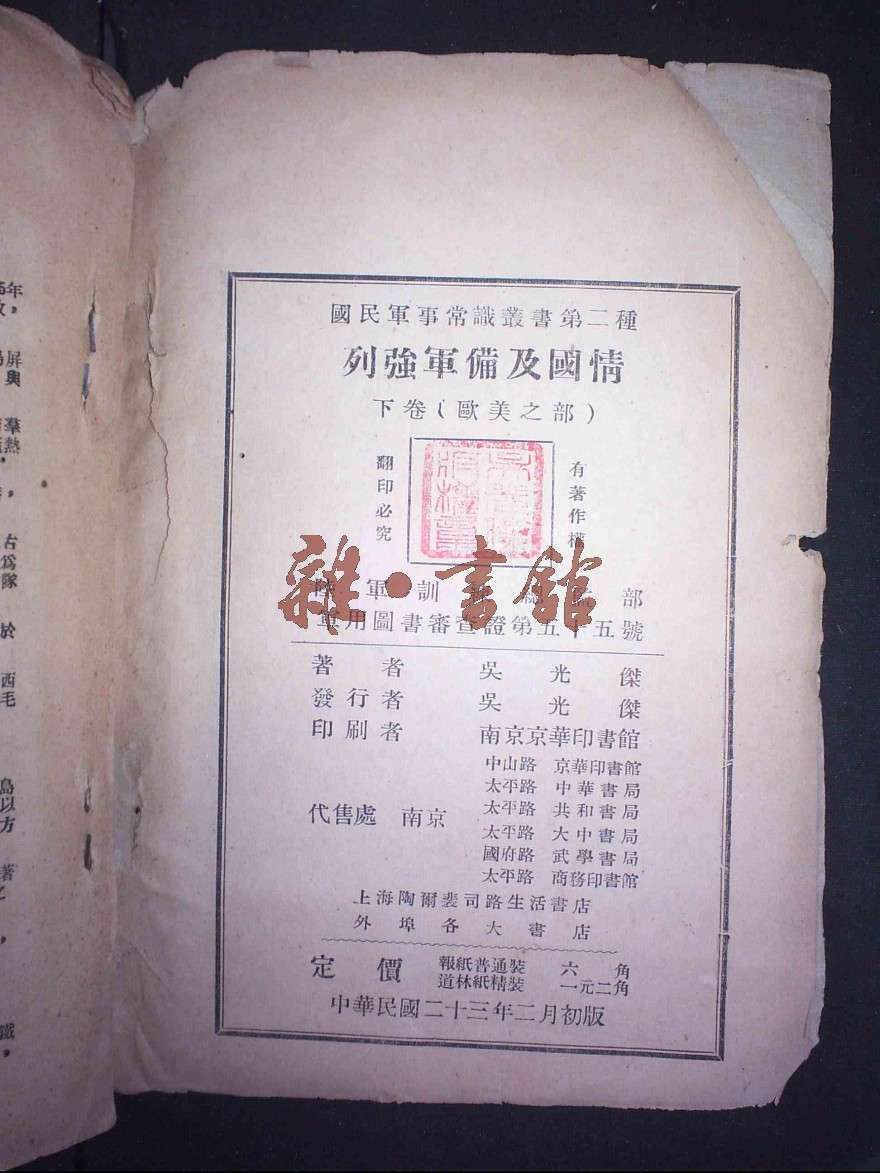 國民軍事常識叢書第二種
列強軍備及國情
下卷(歐美之部)
有著作權
翻印必究
雜·書館
陸軍訓 總監部
軍用圖書審查證第五十五號
著者 吳光傑
發行者 吳光傑
印刷者 南京京華印書館
代售處 南京
中山路 京華印書館
太平路 中華書局
太平路 共和書局
太平路 大中書局
國府路 武學書局
太平路 商務印書館
上海陶爾斐司路生活書店
外埠各大書店
定價
報紙普通裝 六角
道林紙精裝 一元二角
中華民國二十三年二月初版